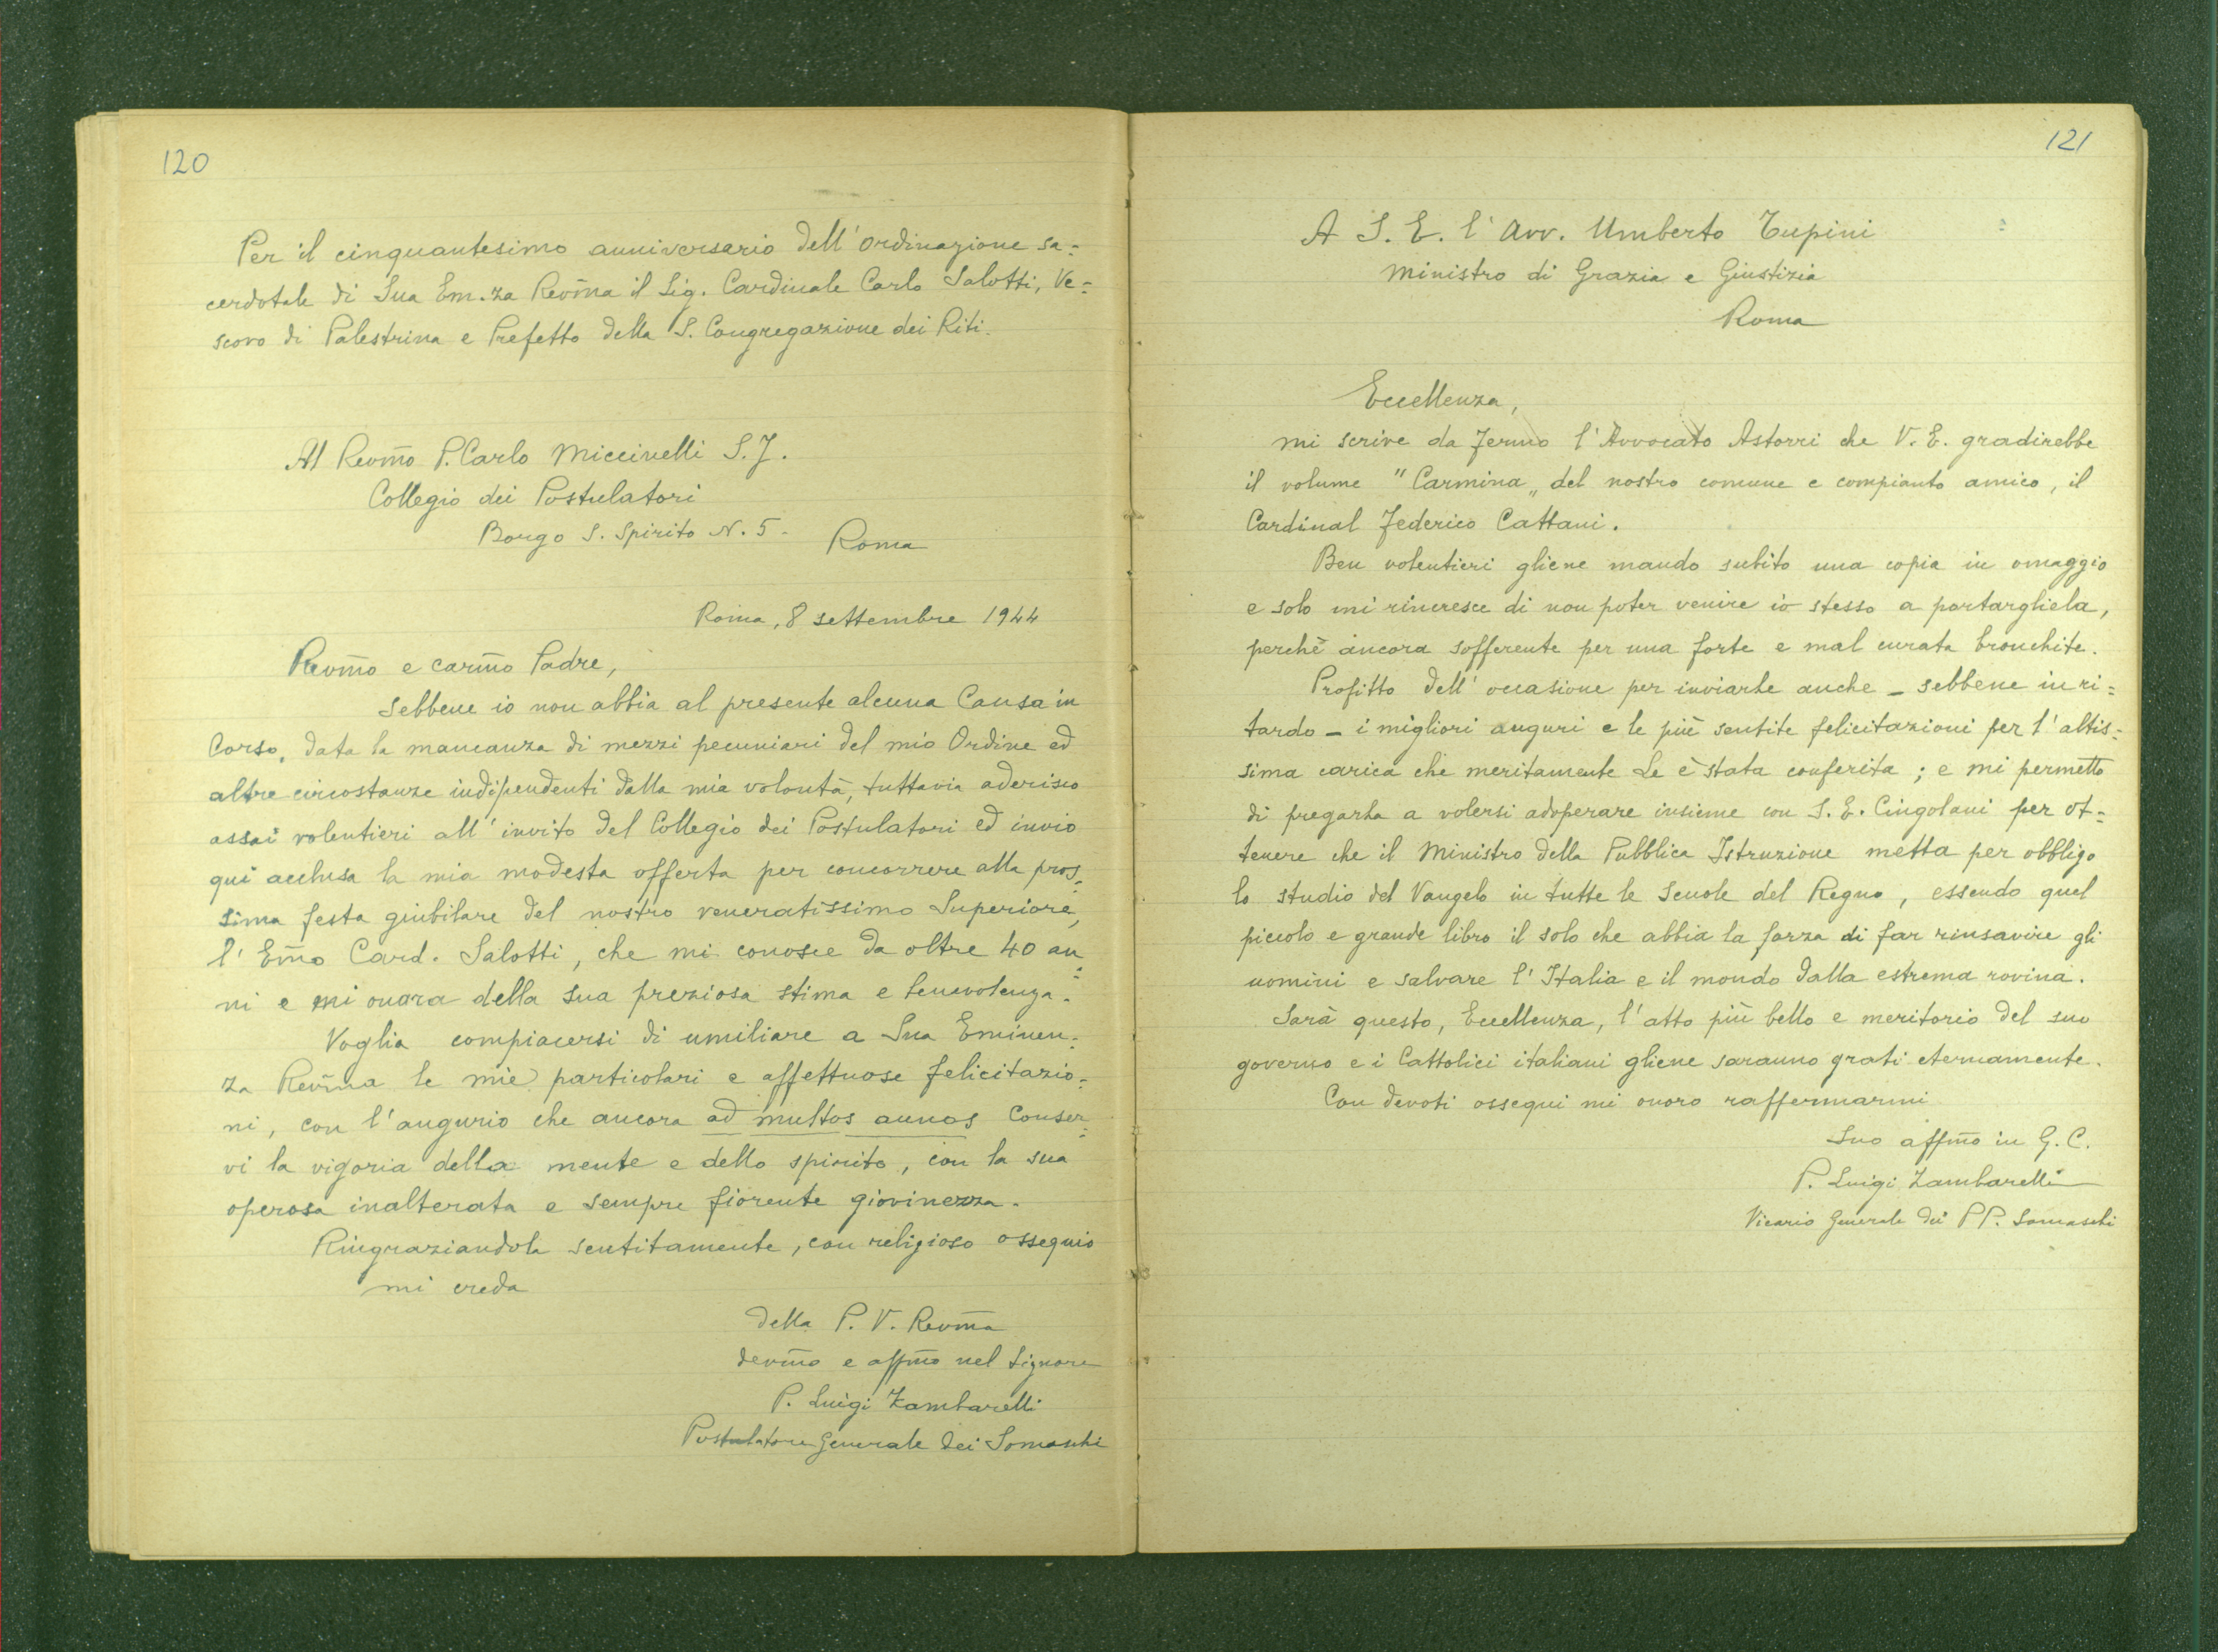 120
Per il cinquantesimo anniversario dell'ordinazione sa=
cerdotale di Sua Em.za Revm̃a il Sig. Cardinale Carlo Salotti, Ve=
scovo di Palestrina e Prefetto della S. Congregazione dei Riti.
Al Revm̃o P. Carlo Miccinelli S.J.
Collegio dei Postulatori
Borgo S. Spirito N. 5 - Roma
Roma, 8 settembre 1944
Revm̃o e carm̃o Padre,
sebbene io non abbia al presente alcuna Causa in
Corso, data la mancanza di mezzi pecuniari del mio Ordine ed
altre circostanze indipendenti dalla mia volontà, tuttavia aderisco
assai volentieri all'invito del Collegio dei Postulatori ed invio
qui acclusa la mia modesta offerta per concorrere alla pros=
sima festa giubilare del nostro veneratissimo Superiore,
l'Em̃o Card. Salotti, che mi conosce da oltre 40 an=
ni e mi onora della sua preziosa stima e benevolenza.
Voglia compiacersi di umiliare a Sua Eminen=
za Revm̃a le mie particolari e affettuose felicitazio=
ni, con l'augurio che ancora ad multos annos conser=
vi la vigoria della mente e dello spirito, con la sua
operosa inalterata e sempre fiorente giovinezza.
Ringraziandola sentitamente, con religioso ossequio
mi creda
della P. V. Revm̃a
devm̃o e affm̃o nel Signore
P. Luigi Zambarelli
Postulatore Generale dei Somaschi
121
A S. E. l'Avv. Umberto Tupini
Ministro di Grazia e Giustizia
Roma
Eccellenza,
mi scrive da Fermo l'Avvocato Astorri che V. E. gradirebbe
il volume "Carmina„ del nostro comune e compianto amico, il
Cardinal Federico Cattani.
Ben volentieri gliene mando subito una copia in omaggio
e solo mi rincresce di non poter venire io stesso a portargliela,
perchè ancora sofferente per una forte e mal curata bronchite.
Profitto dell'occasione per inviarle anche - sebbene in ri=
tardo - i migliori auguri e le più sentite felicitazioni per l'altis=
sima carica che meritamente Le è stata conferita; e mi permetto
di pregarla a volersi adoperare insieme con S. E. Cingolani per ot=
tenere che il Ministro della Pubblica Istruzione metta per obbligo
lo studio del Vangelo in tutte le Scuole del Regno, essendo quel
piccolo e grande libro il solo che abbia la forza di far rinsavire gli
uomini e salvare l'Italia e il mondo dalla estrema rovina.
Sarà questo, Eccellenza, l'atto più bello e meritorio del suo
governo e i Cattolici italiani gliene saranno grati eternamente.
Con devoti ossequi mi onoro raffermarmi
Suo affm̃o in G. C.
P. Luigi Zambarelli
Vicario Generale dei PP. Somaschi